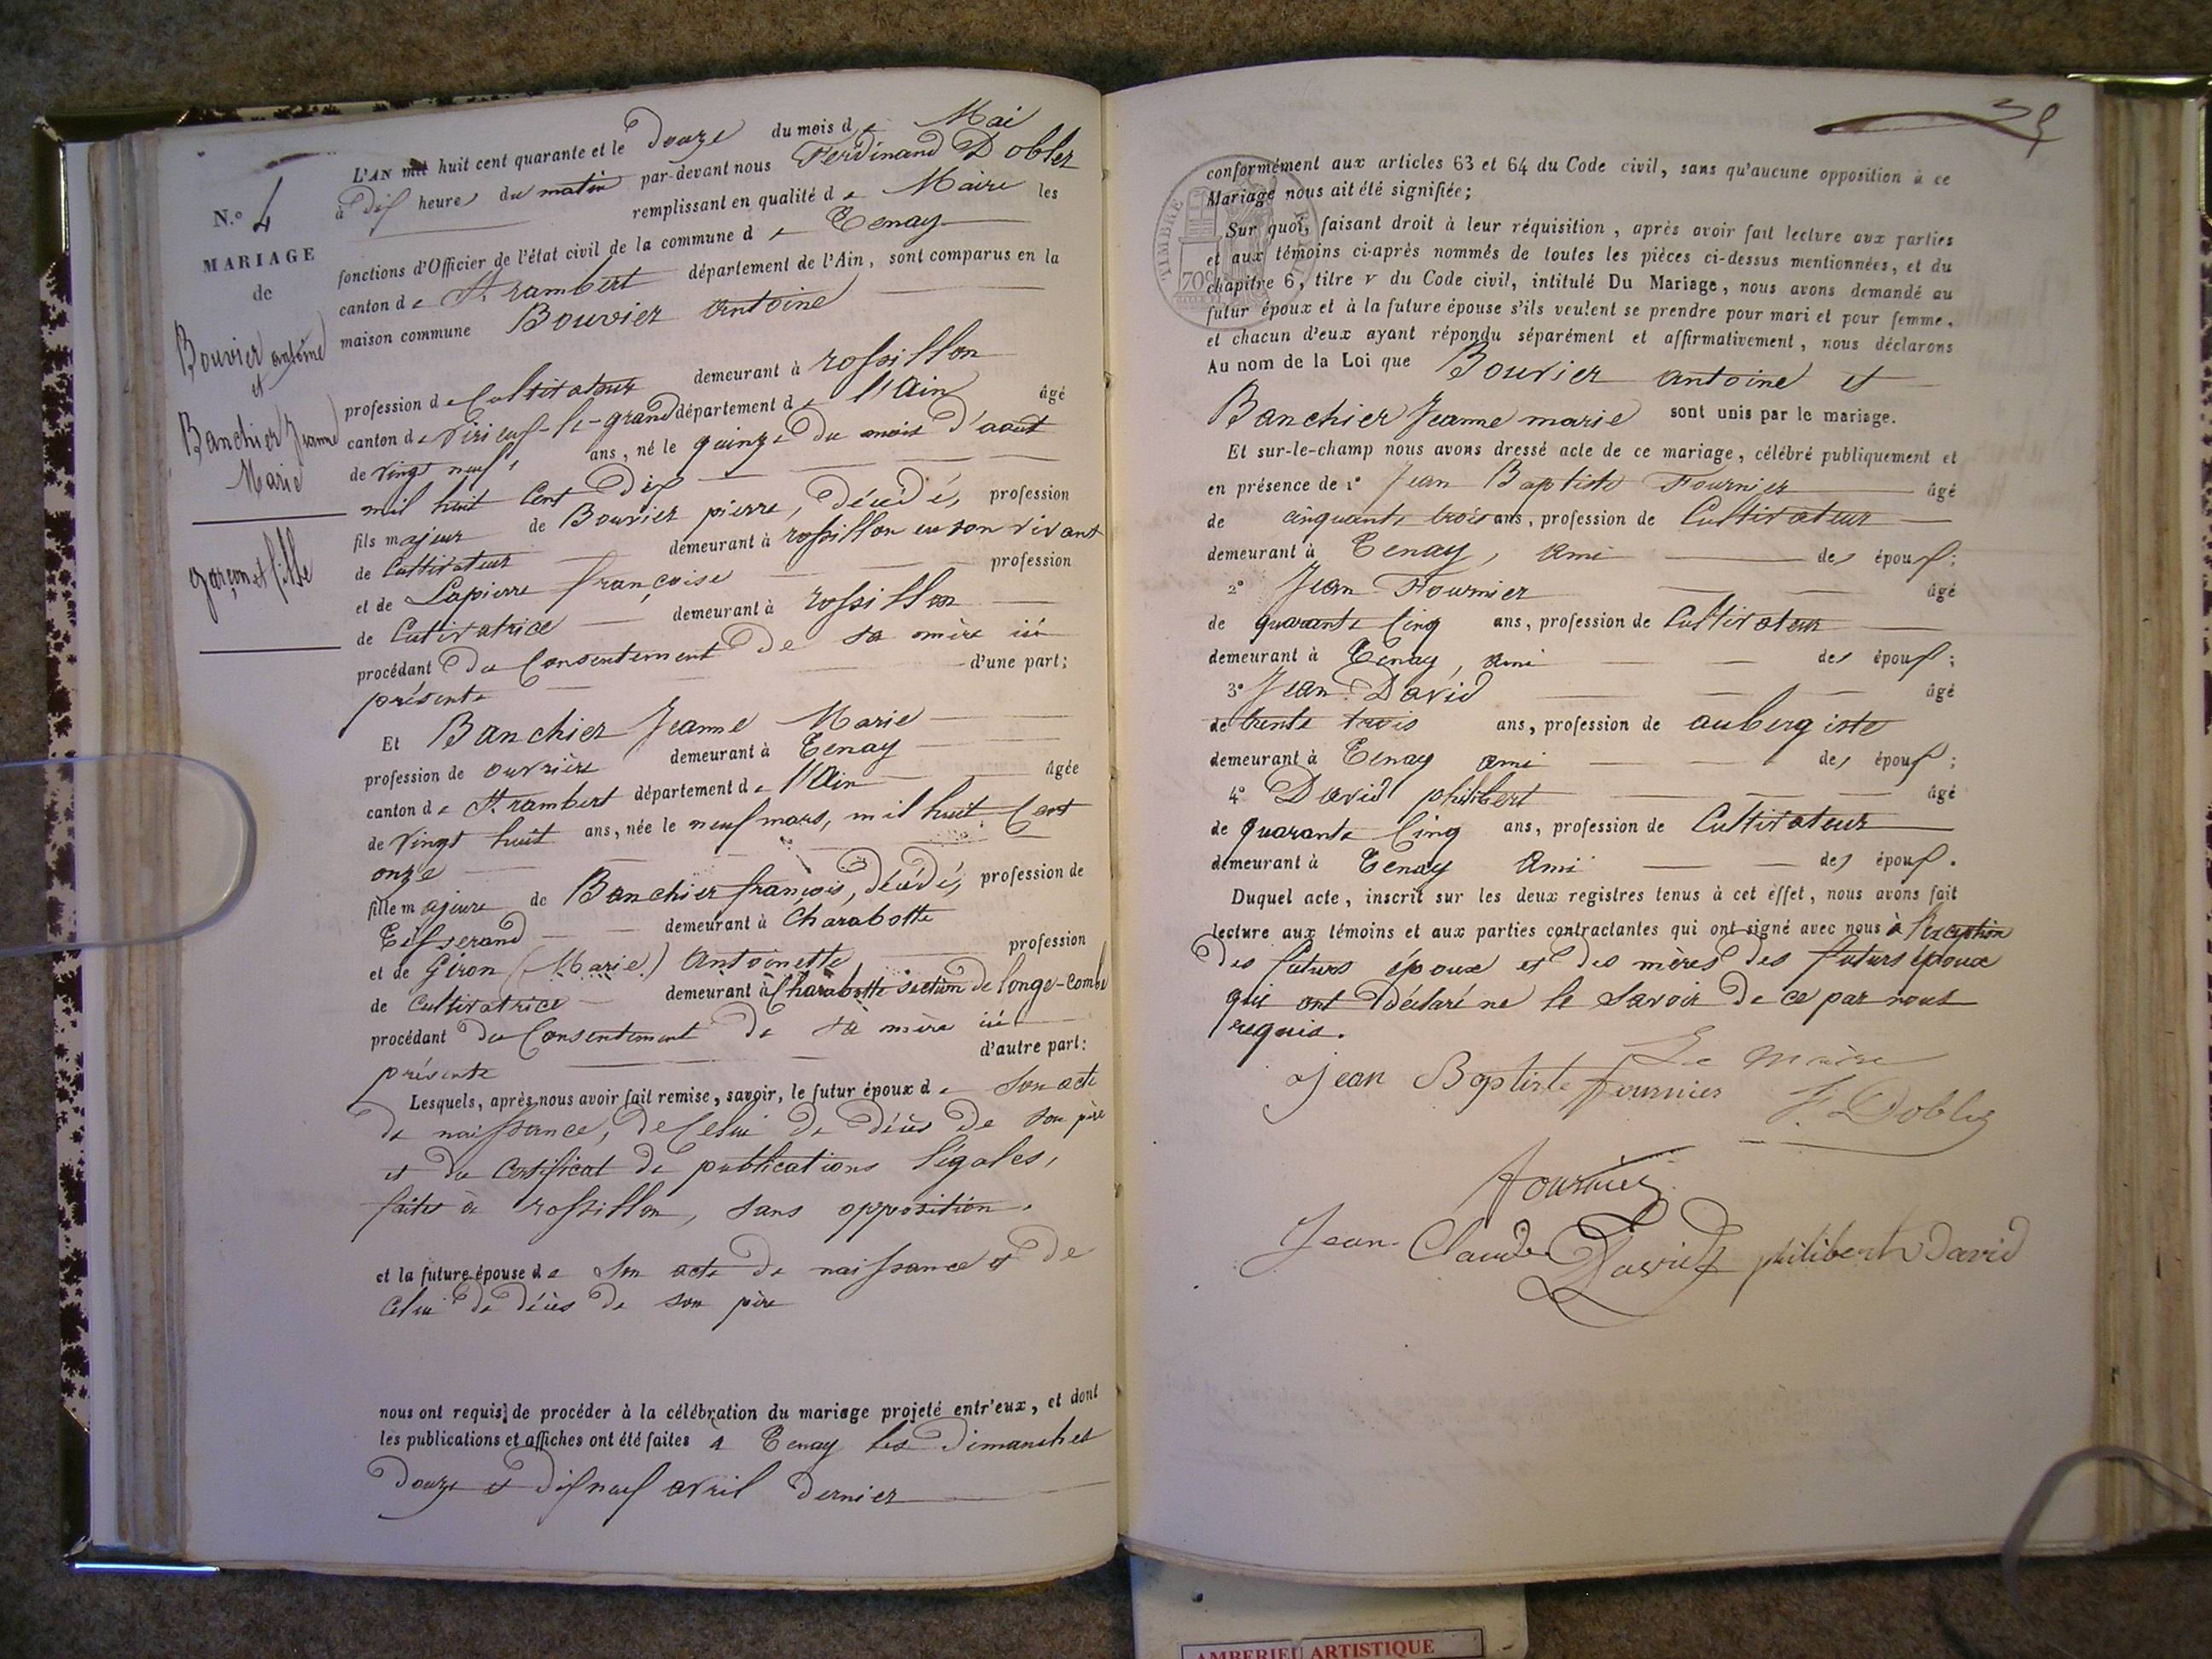 N.º 4
MARIAGE
de
Bouvier antoine
et
Banchier Jeanne
Marie
garçon et fille
L'AN mil huit cent quarante et le Douze du mois de Mai
à Dix heures du matin par-devant nous Ferdinand Dobler
remplissant en qualité de Maire les
fonctions d'Officier de l'état civil de la commune de Tenay
canton de St. rambert département de l'Ain, sont comparus en la
maison commune Bouvier Antoine
profession de Cultivateur demeurant à rossillon
canton de Virieux-le-grand département de l'Ain âgé
de vingt neuf ans, né le quinze du mois d'août
mil huit Cent Dix
fils majeur de Bouvier pierre, Décédé, profession
de Cultivateur demeurant à rossillon en son vivant
et de Lapierre françoise profession
de Cutivatrice demeurant à rossillon
procédant Du Consentement De sa mère ici
présente d'une part;
Et Banchier Jeanne Marie
profession de ouvrière demeurant à Tenay
canton de St. rambert département de l'Ain âgée
de Vingt huit ans, née le neuf mars, mil huit Cent
onze
fille majeure de Banchier françois, Décédé, profession de
Tisserand demeurant à Charabotte
et de Giron (Marie) Antoinette profession
de Cultivatrice demeurant à Charabotte section de longe-Combe
procédant du Consentement De sà mère ici
présente d'autre part:
Lesquels, après nous avoir fait remise, savoir, le futur époux de Son acte
De naissance, De Celui De Décès De son père
et Du Certificat De publications légales,
faites à rossillon, sans opposition.
et la future épouse de Son acte De naissance et De
Celui De Décès De son père
nous ont requis de procéder à la célébration du mariage projeté entr'eux, et dont
les publications et affiches ont été faites à Tenay les Dimanches
Douze et Dix neuf avril Dernier
conformément aux articles 63 et 64 du Code civil, sans qu'aucune opposition à ce
Mariage nous ait été signifiée;
TIMBRE
70c
Sur quoi, faisant droit à leur réquisition, après avoir fait lecture aux parties
et aux témoins ci-après nommés de toutes les pièces ci-dessus mentionnées, et du
chapitre 6, titre v du Code civil, intitulé Du Mariage, nous avons demandé au
futur époux et à la future épouse s'ils veulent se prendre pour mari et pour femme,
et chacun d'eux ayant répondu séparément et affirmativement, nous déclarons
Au nom de la Loi que Bouvier Antoine et
Banchier Jeanne marie sont unis par le mariage.
Et sur-le-champ nous avons dressé acte de ce mariage, célébré publiquement et
en présence de 1º Jean Baptiste Fournier âgé
de cinquante trois ans, profession de Cultivateur
demeurant à Tenay, Ami des époux;
2º Jean Fournier âgé
de quarante Cinq ans, profession de Cultivateur
demeurant à Tenay, Ami des époux;
3º Jean David âgé
de trente trois ans, profession de aubergiste
demeurant à Tenay Ami des époux;
4º David philibert âgé
de quarante Cinq ans, profession de Cultivateur
demeurant à Tenay Ami des époux.
Duquel acte, inscrit sur les deux registres tenus à cet effet, nous avons fait
lecture aux témoins et aux parties contractantes qui ont signé avec nous à l'exception
Des futurs époux et Des mères Des futurs époux
qui ont Déclaré ne le savoir De ce par nous
requis.
Le Maire
Jean Baptiste fournier F. Dobler
fournier
Jean Claude David philibert David
AMBERIEU ARTISTIQUE